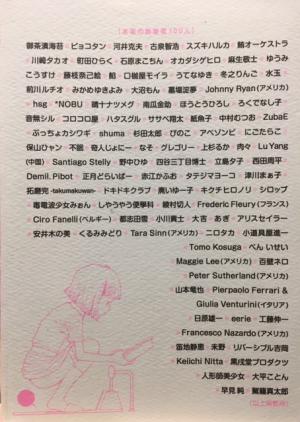 [本展の出展者100人]
御茶漬海苔 ピョコタン 河井克夫 古泉智浩 スズキハルカ 鮪オーケストラ
川崎タカオ 町田ひらく 石原まこちん オカダシゲヒロ 麻生敬士 ゆうみ
こうすけ 藤枝奈己絵 船 口枷屋モイラ うてなゆき 冬之りんご 水玉
前川ルチオ みかめゆきよみ 大沼もん 墓場淀夢 Johnny Ryan(アメリカ)
hsg *NOBU 晴十ナツメグ 南瓜金助 ほうとうひろし ろくでなし子
音無シル コロコロ屋 ハタスグル ササベ翔太 紙魚子 中村むつお ZubaE
ぶっちょカシワギ shuma 杉田太郎 ぴのこ アベソンビ にこたらこ
保山ひャン 不眠 奇人じょにー なそ グレゴリー 上杉るか 肉々 Lu Yang
(中国) Santiago Stelly 野中ひゆ 四谷三丁目博士 立島夕子 西田周平
Demil.Pibot 正月どらいばー 赤江かふお タテジマヨーコ 津川まぁ子
拓磨完 -takumakuwan- ドキドキクラブ 奥いゆー子 キクチヒロノリ シロップ
毒電波少女みぉん しやうやう便學科 綾村切人 Frederic Fleury(フランス)
Ciro Fanelli(ベルギー) 都志田雪 小川貴士 大吉 あぎ アリスセイラー
安井木の美 くるみみどり Tara Sinn(アメリカ) ニロタカ 小道具屋進一
Tomo Kosuga べん いせい
Maggie Lee(アメリカ) 百壁ネロ
Peter Sutherland(アメリカ)
山本竜也 Pierpaolo Ferrari &
Giulia Venturini(イタリア)
日原雄一 eerie 工藤伸一
Francesco Nazardo(アメリカ)
笛地静恵 未野 リバーシブル吉岡
Keiichi Nitta 黒戌堂プロダクツ
人形師美少女 大平ことん
早見 純 駕籠真太郎